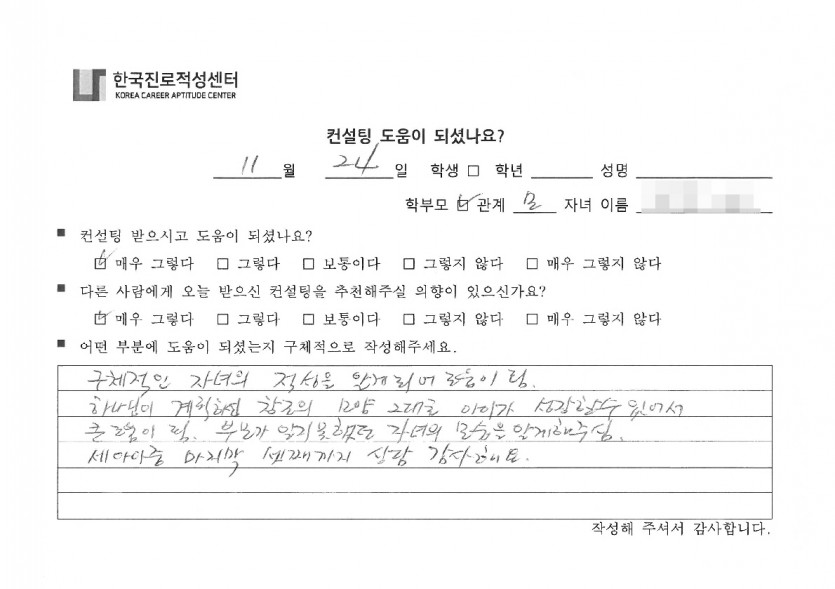 한국진로적성센터
KOREA CAREER APTITUDE CENTER
컨설팅 도움이 되셨나요?
11 월 24 일 학생 □ 학년 성명
학부모 ☑ 관계 모 자녀 이름
■ 컨설팅 받으시고 도움이 되셨나요?
☑ 매우 그렇다 □ 그렇다 □ 보통이다 □ 그렇지 않다 □ 매우 그렇지 않다
■ 다른 사람에게 오늘 받으신 컨설팅을 추천해주실 의향이 있으신가요?
☑ 매우 그렇다 □ 그렇다 □ 보통이다 □ 그렇지 않다 □ 매우 그렇지 않다
■ 어떤 부분에 도움이 되셨는지 구체적으로 작성해주세요.
구체적인 자녀의 적성을 알게되어 도움이 됨.
하나님이 계획하신 창조의 모양 그대로 아이가 성장할수 있어서
큰 도움이 됨. 부모가 알지못했던 자녀의 모습을 알게해주심.
세아이중 마지막 셋째까지 상담 감사해요.
작성해 주셔서 감사합니다.